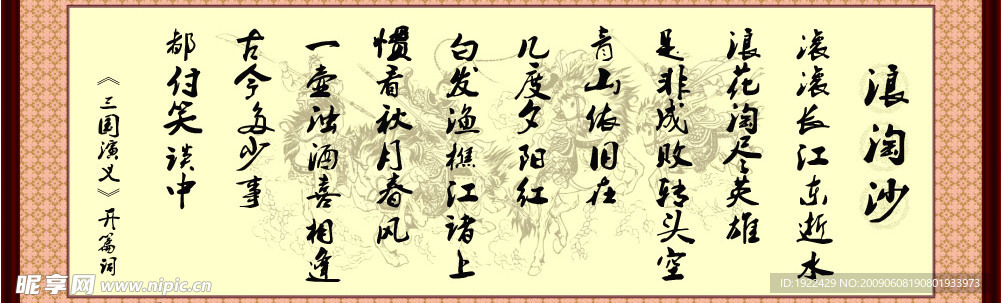 浪淘沙
滚滚长江东逝水
浪花淘尽英雄
是非成败转头空
青山依旧在
几度夕阳红
白发渔樵江诸上
惯看秋月春风
一壶浊酒喜相逢
古今多少事
都付笑谈中
《三国演义》开篇词
昵享网 www.nipic.cn
ID:1922429 NO:20090608190801933973